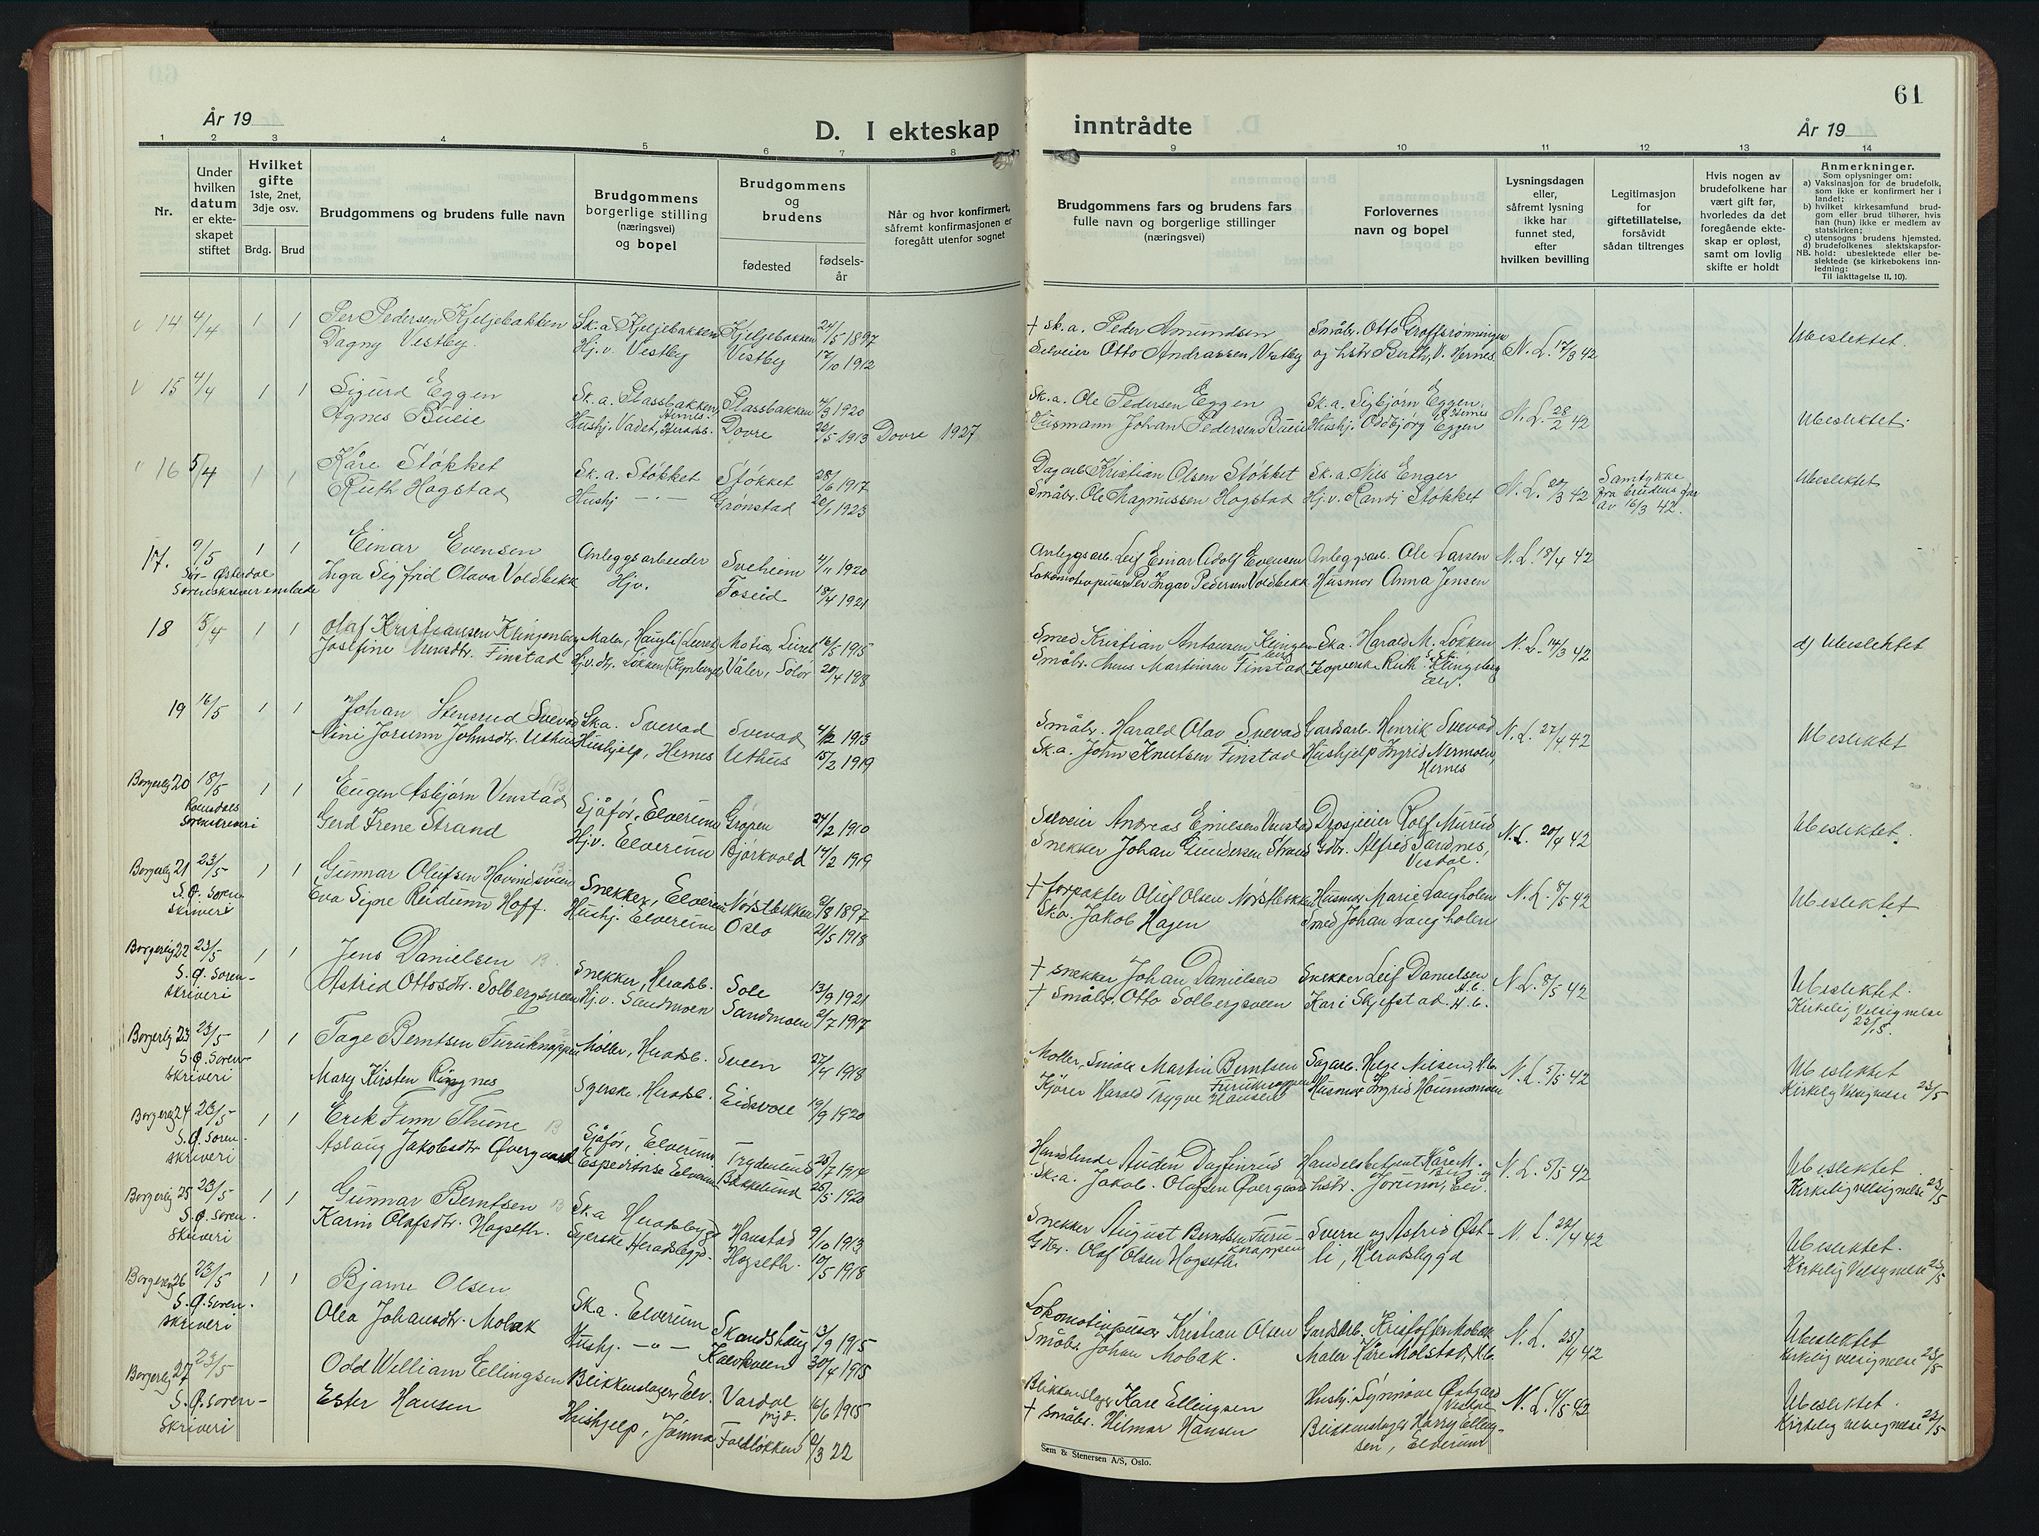 61
År 19
D. I ekteskap
inntrådte
År 19
1 2 3 4 5 6 7 8 9 10 11 12 13 14
Nr.
Under hvilken datum er ekteskapet stiftet
Hvilket gifte
1ste, 2net, 3dje osv.
Brdg. Brud
Brudgommens og brudens fulle navn
Brudgommens borgerlige stilling (næringsvei) og bopel
Brudgommens og brudens
fødested
fødselsår
Når og hvor konfirmert, såfremt konfirmasjonen er foregått utenfor sognet
Brudgommens fars og brudens fars fulle navn og borgerlige stillinger (næringsvei)
Forlovernes navn og bopel
Lysningsdagen eller, såfremt lysning ikke har funnet sted, efter hvilken bevilling
Legitimasjon for giftetillatelse, forsåvidt sådan tiltrenges
Hvis nogen av brudefolkene har vært gift før, hvorledes da det foregående ekteskap er opløst, samt om lovlig skifte er holdt
Anmerkninger.
Som oplysninger om:
a) Vaksinasjon for de brudefolk, som ikke er konfirmert her i landet;
b) hvilket kirkesamfund brudgom eller brud tilhører, hvis han (hun) ikke er medlem av statskirken;
c) utensogns brudens hjemsted.
d) brudefolkenes slektskapsforhold: ubeslektede eller beslektede (se kirkebokens innledning:
NB.
Til iakttagelse II. 10).
14 4/4 1 1 Per Pedersen Kjeljebakken Sk.a. Kjeljebakken Kjeljebakken 24/5 1897 † sk.a. Peder Amundsen Småbr. Otto Graffsrønningen
Dagny Vestby. Hj.v. Vestby Vestby 17/10 1912 Selveier Otto Andreassen Vestby og hstr Berth. V. Hernes N. L. 17/3 42 Ubeslektet.
15 4/4 1 1 Sigurd Eggen Sk.a. Plassbakken, Hernes Plassbakken 4/3 1920 Sk.a. Ole Pedersen Eggen Sk.a. Sigbjørn Eggen, Hernes
Agnes Bueie Hushj. Vadet, Heradsb. Dovre 22/5 1913 Dovre 1927 Husmann Johan Pedersen Bueie Hushj. Oddbjørg Eggen N. L. 28/2 42 Ubeslektet.
16 5/4 1 1 Kåre Støkket Sk.a. Støkket Støkket 28/6 1917 Dagarb. Kristian Olsen Støkket Sk.a. Nils Enger
Ruth Hagstad Hushj — " — Grønstad 20/1 1923 Småbr. Ole Magnussen Hagstad Hj.v. Randi Støkket N. L. 20/3 42 Samtykke fra brudens far av 16/3 42. Ubeslektet
17. 9/5 1 1 Einar Evensen Anleggsarbeider Sveheim 4/11 1920 Anleggsarb. Leif Einar Adolf Evensen Anleggsarb. Ole Larsen N. L. 18/4 42
Sør-Østerdal Sorenskriverembede Inga Sigfrid Olava Voldbekk Hjv. Foseid 18/4 1921 Lokomotivpusser Per Ingar Pedersen Voldbekk Husmor Anna Jensen
18 5/4 1 1 Olaf Kristiansen Klingenberg Maler, Haugli (Leiret) 16/5 1915 Smed Kristian Antonsen Klingenberg Ska. Harald M. Løkken N. L. 14/3 42 d) Ubeslektet
Josefine Finstad Våler, Solør 20/4 1908 Småbr. Martinsen Finstad Ruth Klingeberg Elv.
19 16/5 1 1 Johan Stensrud Svevad Ska. Svevad Svevad 4/2 1913 Småbr. Harald Olav Svevad Gardsarb. Henrik Svevad N. L. 27/4 42 Ubeslektet
Nini Jorunn Johnsdtr. Uthus Hushjelp, Hernes Uthus 15/2 1919 Sk.a. John Knutsen Finstad Hushjelp Ingrid Nermoen, Hernes
Borgerlig 20 18/5 1 1 Eugen Asbjørn Venstad Sjåfør, Elverum Grøpen 24/2 1910 Selveier Andreas Emilsen Venstad Drosjeeier Rolf Murud
Romsdals Sorenskriveri Gerd Irene Strand Hj.v. Elverum Bjørkvold 14/2 1919 Snekker Johan Gundersen Strand Gdbr. Alfred Sandnes, N. L. 20/4 42 Ubeslektet.
Borgerlig 21 23/5 1 1 Gunnar Olufsen Havindsveen Snekker, Elverum Nørstbekken 9/8 1897 † forpakter Oluf Olsen Nørstbekken Husmor Marie Langholen N. L. 8/5 42
S. Ø. Sorenskriveri Eva Signe Reidunn Hoff. Hushj. Elverum Oslo 21/5 1918 Sk.a. Jakob Hagen Smed Johan Langholen Ubeslektet
Borgerlig 22 23/5 1 1 Jens Danielsen Snekker, Heradsb. Sole 13/9 1921 † snekker Johan Danielsen Snekker Leif Danielsen H.b. N. L. 8/5 42 Ubeslektet.
S. Ø. Sorenskriveri Astrid Ottosdtr. Solbergsveen Hj.v. Sandmoen Sandmoen 2/7 1917 † Småbr. Otto Solbergsveen Kari Skjefstad H.b. Kirkelig Velsignelse 23/5.
Borgerlig 23 23/5 1 1 Tage Berntsen Furuknappen Møller, Heradsb. Sveen 27/4 1918 Møller, Martin Berntsen Furuknappen Sagarb. Helge Nilsen, H.b. N. L. 5/5 42 Ubeslektet
S. Ø. Sorenskriveri Mary Kirsten Ringnes Syerske, Heradsb. Eidsvoll 19/9 1920 Kjører Harald Trygve Hansen Husmor Ingrid Kirkelig Velsignelse 23/5
Borgerlig 24 23/5 1 1 Erik Finn Thune Sjåfør, Elverum 25/7 1914 Handlende Auden Dagfinrud Handelsbetjent Kåre M. Berg og N. L. 5/5 42 Ubeslektet.
S. Ø. Sorenskriveri Aslaug Jakobsdtr Øvergaard Espeditrise Elverum Bakkelund 25/5 1920 Sk.a. Jakob Olafsen Øvergaard hstr. Jorunn, Elv. Kirkelig velsignelse 23/5
Borgerlig 25 23/5 1 1 Gunnar Berntsen Sk.a Heradsbygd Hanstad 9/10 1913 Snekker August Berntsen Furuknappen Sverre og Astrid Øst- N. L. 22/4 42
S. Ø. Sorenskriveri Karin Olafsdtr. Hagseth. Syerske Heradsbygd. Hagseth. 10/5 1918 Gdbr. Olaf Olsen Hagseth li, Heradsbygda Ubeslektet. Kirkelig Velsignelse 23/5
Borgerlig 26 23/5 1 1 Bjarne Olsen Ska. Elverum Skandshaug 13/9 1915 Lokomotivpusser Kristian Olsen Gardsarb. Kristoffer Mobak N. L. 25/4 42 Ubeslektet
S. Ø. Sorenskriveri Olea Johansdtr. Mobak Hushj. — " — Kalvkveen 30/4 1915 Småbr. Johan Mobak. Maler Kåre Molstad, H.b. Kirkelig velsignelse 23/5
Borgerlig 27 23/5 Odd William Ellingsen Blikkenslager, Elv. Vardal 16/6 1915 Blikkenslager Kare Ellingsen Hushj. Synnøve Østgard N. L. 4/5 42 Ubeslektet
S. Ø. Sorenskriveri Ester Hansen Hushjelp, Jømna Foldløkken 9/3 22 † småbr. Hilmar Hansen Blikkenslager Harry Ellingsen, Elverum Kirkelig velsignelse 23/5
Sem & Stenersen A/S, Oslo.